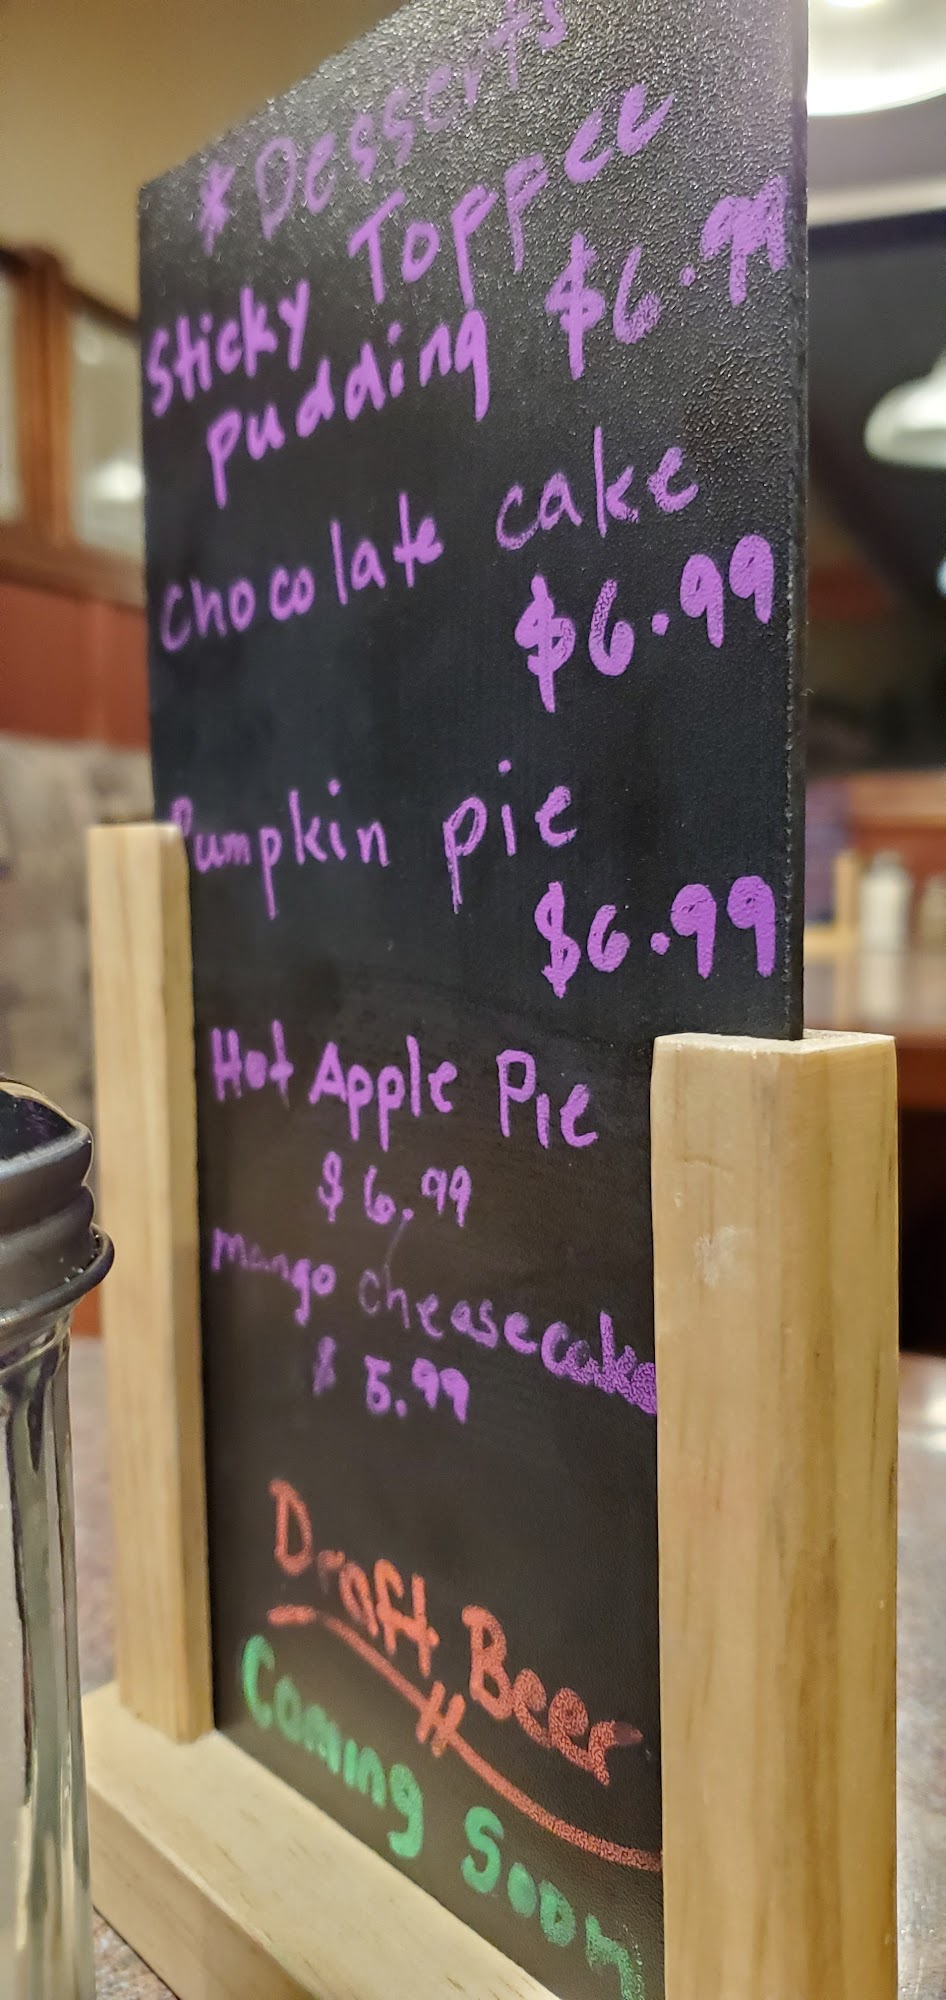 * Desserts
Sticky Toffee
pudding $6.99
Chocolate cake
$6.99
Pumpkin pie
$6.99
Hot Apple Pie
$6.99
Mango cheasecake
$ 5.99
Draft Beer
Coming Soon